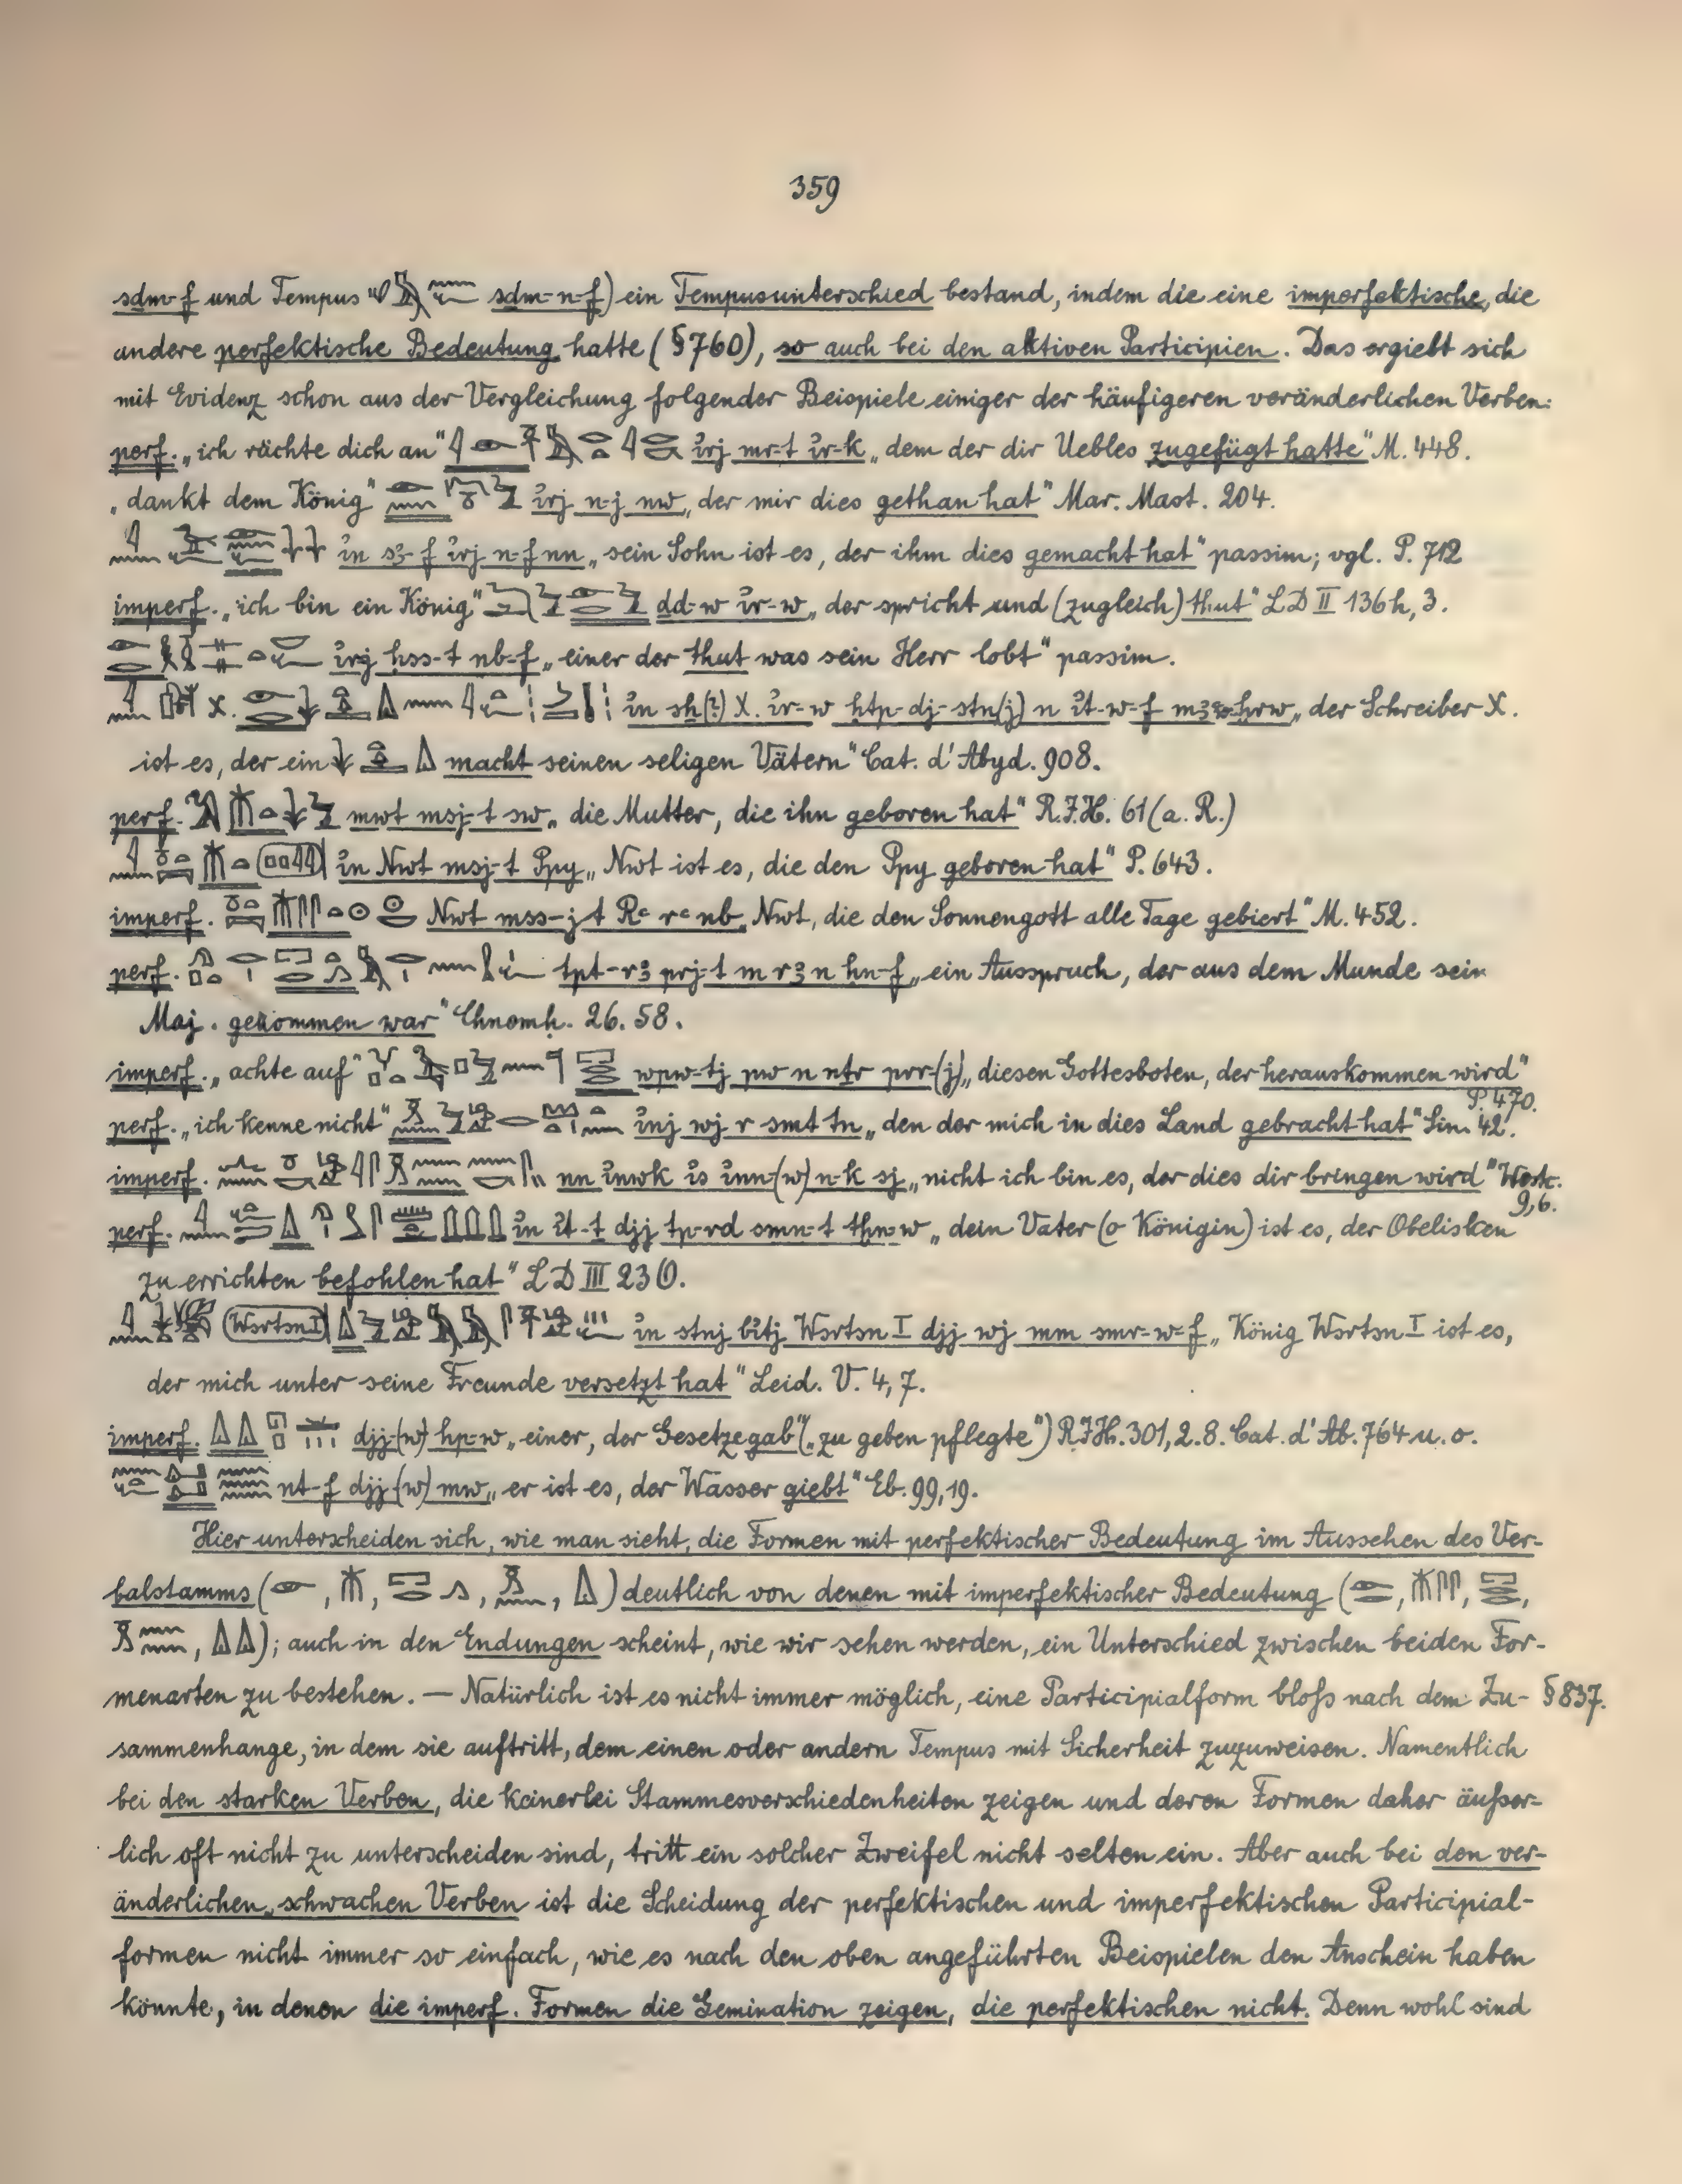 359
sdm-f und Tempus sdm-n-f) ein Tempusunterschied bestand, indem die eine imperfektische, die
andere perfektische Bedeutung hatte (§760), so auch bei den aktiven Participien. Das ergiebt sich
mit Evidenz schon aus der Vergleichung folgender Beispiele einiger der häufigeren veränderlichen Verben:
perf. „ich rächte dich an" irj mr-t ir-k „dem der dir Uebles zugefügt hatte" M. 448.
„dankt dem König" irj n-j nw „der mir dies gethan hat" Mar. Mast. 204.
in s3-f irj n-f nn „sein Sohn ist es, der ihm dies gemacht hat" passim; vgl. P. 712
imperf. „ich bin ein König" dd-w ir-w „der spricht und (zugleich) thut" LD II 136h, 3.
irj hss-t nb-f „einer der thut was sein Herr lobt" passim.
X. in sh(?) X. ir-w htp-dj-stn(j) n it-w-f m3-hrw „der Schreiber X.
ist es, der ein macht seinen seligen Vätern" Cat. d'Abyd. 908.
perf. mwt msj-t sw „die Mutter, die ihn geboren hat" R.I.H. 61 (a. R.)
in Nwt msj-t Ppy „Nwt ist es, die den Ppy geboren hat" P. 643.
imperf. Nwt mss-jt Rꜥ rꜥ nb „Nwt, die den Sonnengott alle Tage gebiert" M. 452.
perf. tpt-r3 prj-t m r3 n hn-f „ein Ausspruch, der aus dem Munde sein
Maj. gekommen war" Chnomh. 26. 58.
imperf. „achte auf" wpw-tj pw n ntr prr-(j) „diesen Gottesboten, der herauskommen wird"
P. 470.
perf. „ich kenne nicht" inj wj r smt tn „den der mich in dies Land gebracht hat" Sin. 42.
imperf. nn inwk is inn-(w) n-k sj „nicht ich bin es, der dies dir bringen wird" Westc.
9,6.
perf. in it-t djj tp-rd smn-t thn-w „dein Vater (o Königin) ist es, der Obelisken
zu errichten befohlen hat" LD III 23
Wsrtsn I in stnj bitj Wsrtsn I djj wj mm smr-w-f „König Wsrtsn I ist es,
der mich unter seine Freunde versetzt hat" Leid. V. 4, 7.
imperf. djj-(w) hp-w „einer, der Gesetze gab" („zu geben pflegte") R.I.H. 301, 2. 8. Cat. d'Ab. 764 u. o.
nt-f djj-(w) mw „er ist es, der Wasser giebt" Eb. 99, 19.
Hier unterscheiden sich, wie man sieht, die Formen mit perfektischer Bedeutung im Aussehen des Ver-
balstamms ( , , , , ) deutlich von denen mit imperfektischer Bedeutung ( , , ,
, ); auch in den Endungen scheint, wie wir sehen werden, ein Unterschied zwischen beiden For-
menarten zu bestehen. — Natürlich ist es nicht immer möglich, eine Participialform bloß nach dem Zu- §837.
sammenhange, in dem sie auftritt, dem einen oder andern Tempus mit Sicherheit zuzuweisen. Namentlich
bei den starken Verben, die keinerlei Stammesverschiedenheiten zeigen und deren Formen daher äußer-
lich oft nicht zu unterscheiden sind, tritt ein solcher Zweifel nicht selten ein. Aber auch bei den ver-
änderlichen schwachen Verben ist die Scheidung der perfektischen und imperfektischen Participial-
formen nicht immer so einfach, wie es nach den oben angeführten Beispielen den Anschein haben
könnte, in denen die imperf. Formen die Gemination zeigen, die perfektischen nicht. Denn wohl sind